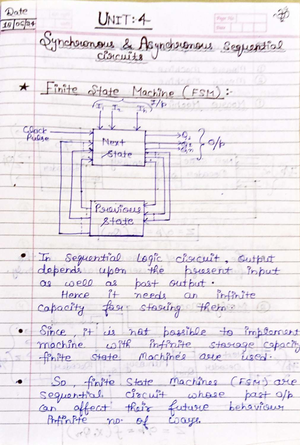 Date
18/05/24
UNIT: 4
Synchronous & Asynchronous Sequential
circuits
★ Finite State Machine (FSM):-
I/p
I₁ I₂ Iₙ
Clock
Pulse
Next
State
Q₁
Q₂
Qₙ
O/p
Previous
State
• In Sequential Logic circuit, output
depends upon the present input
as well as past output.
Hence it needs an infinite
capacity for storing them.
• Since, it is not possible to implement
machine with infinite storage capacity
finite state Machines are used.
• So, finite State Machines (FSM) are
sequential circuit whose past o/p
can affect their future behaviour
Infinite no. of ways